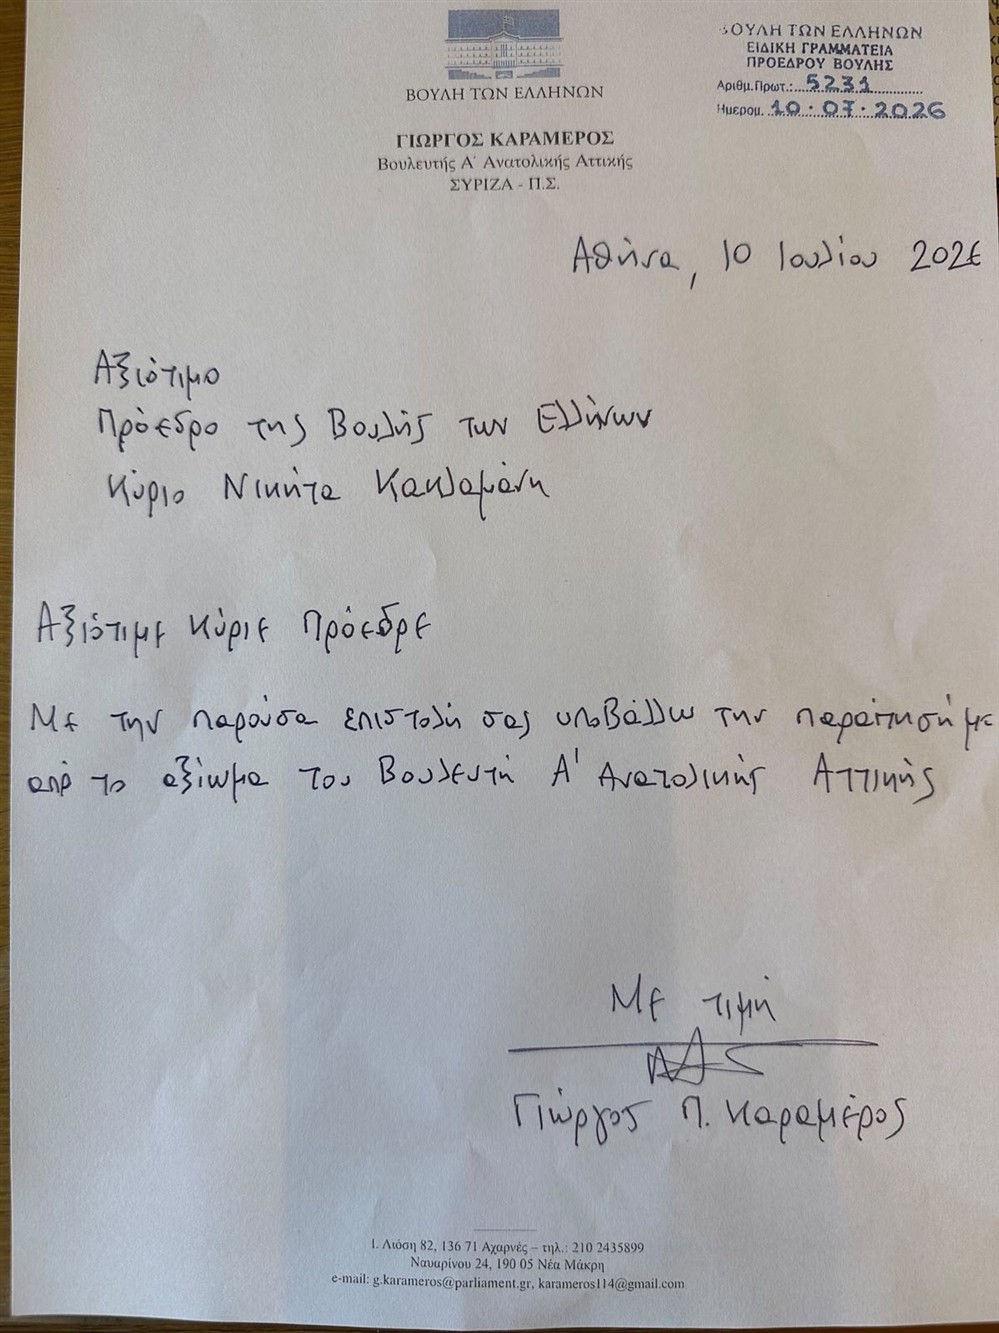 ΒΟΥΛΗ ΤΩΝ ΕΛΛΗΝΩΝ
ΓΙΩΡΓΟΣ ΚΑΡΑΜΕΡΟΣ
Βουλευτής Α΄ Ανατολικής Αττικής
ΣΥΡΙΖΑ - Π.Σ.
ΒΟΥΛΗ ΤΩΝ ΕΛΛΗΝΩΝ
ΕΙΔΙΚΗ ΓΡΑΜΜΑΤΕΙΑ
ΠΡΟΕΔΡΟΥ ΒΟΥΛΗΣ
Αριθμ.Πρωτ.: 5231
Ημερομ. 10·07·2026
Αθήνα, 10 Ιουλίου 2026
Αξιότιμο
Πρόεδρο της Βουλής των Ελλήνων
Κύριο Νικήτα Κακλαμάνη
Αξιότιμε Κύριε Πρόεδρε
Με την παρούσα επιστολή σας υποβάλλω την παραίτησή μου
από το αξίωμα του Βουλευτή Α' Ανατολικής Αττικής
Με τιμή
Γιώργος Π. Καραμέρος
Ι. Λιόση 82, 136 71 Αχαρνές – τηλ.: 210 2435899
Ναυαρίνου 24, 190 05 Νέα Μάκρη
e-mail: g.karameros@parliament.gr, karameros114@gmail.com